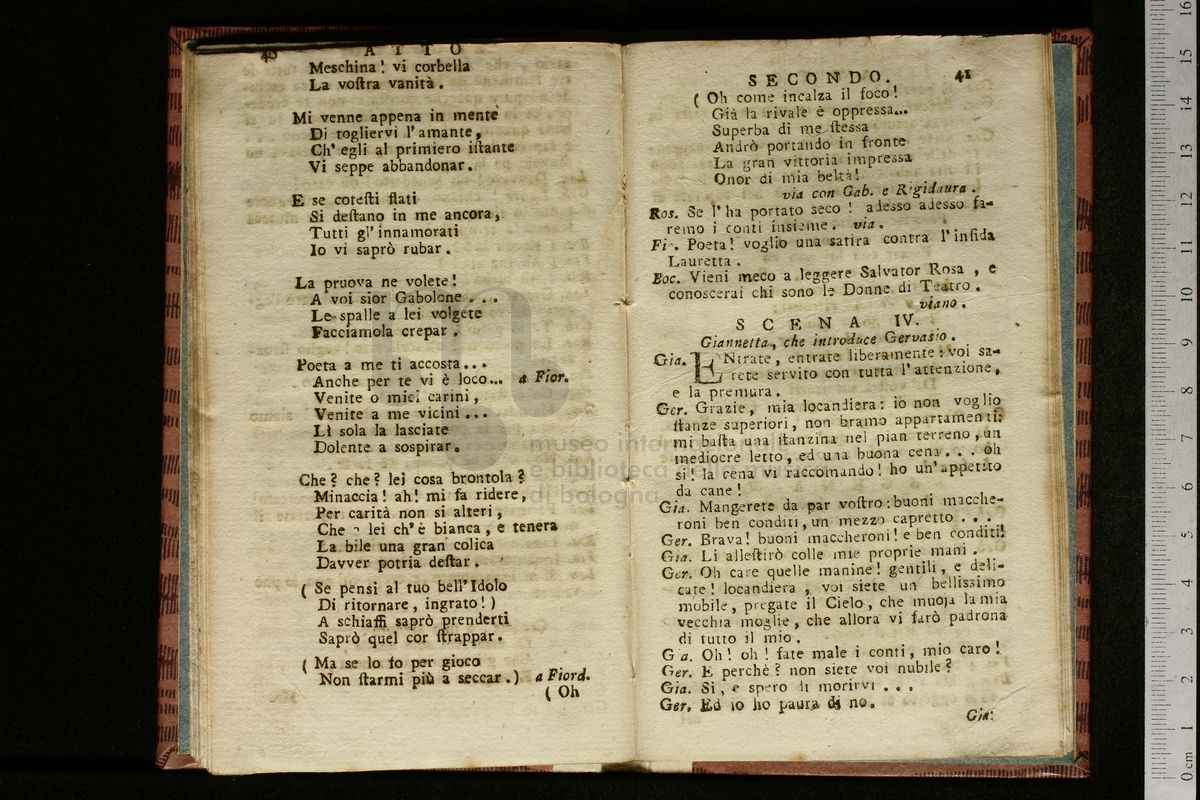 40 ATTO
Meschina! vi corbella
La voſtra vanità.
Mi venne appena in mente
Di togliervi l'amante,
Ch' egli al primiero iſtante
Vi seppe abbandonar.
E se coteſti flati
Si deſtano in me ancora,
Tutti gl' innamorati
Io vi saprò rubar.
La pruova ne volete!
A voi sior Gabolone...
Le spalle a lei volgete
Facciamola crepar.
Poeta a me ti accosta...
Anche per te vi è loco... a Fior.
Venite o miei carini,
Venite a me vicini...
Lì sola la lasciate
Dolente a sospirar.
Che? che? lei cosa brontola?
Minaccia! ah! mi fa ridere,
Per carità non si alteri,
Che a lei ch' è bianca, e tenera
La bile una gran colica
Davver potria deſtar.
( Se pensi al tuo bell' Idolo
Di ritornare, ingrato! )
A schiaffi saprò prenderti
Saprò quel cor ſtrappar.
( Ma se lo fo per gioco
Non ſtarmi più a seccar.) a Fiord.
( Oh
SECONDO. 41
( Oh come incalza il foco!
Già la rivale è oppressa...
Superba di me ſtessa
Andrò portando in fronte
La gran vittoria impressa
Onor di mia beltà!
via con Gab. e Rigidaura.
Ros. Se l' ha portato seco! adesso adesso fa-
remo i conti insieme. via.
Fi. Poeta! voglio una satira contra l' infida
Lauretta.
Boc. Vieni meco a leggere Salvator Rosa, e
conoscerai chi sono le Donne di Teatro.
viano.
SCENA IV.
Giannetta, che introduce Gervasio.
Gia. ENtrate, entrate liberamente: voi sa-
rete servito con tutta l' attenzione,
e la premura.
Ger. Grazie, mia locandiera: io non voglio
ſtanze superiori, non bramo appartamenti:
mi baſta una ſtanzina nel pian terreno, un
mediocre letto, ed una buona cena... oh
si! la cena vi raccomando! ho un' appetito
da cane!
Gia. Mangerete da par voſtro: buoni macche-
roni ben conditi, un mezzo capretto...
Ger. Brava! buoni maccheroni! e ben conditi!
Gia. Li alleſtirò colle mie proprie mani.
Ger. Oh care quelle manine! gentili, e deli-
cate! locandiera, voi siete un bellissimo
mobile, pregate il Cielo, che muoja la mia
vecchia moglie, che allora vi farò padrona
di tutto il mio.
Gia. Oh! oh! fate male i conti, mio caro!
Ger. E perchè? non siete voi nubile?
Gia. Si, e spero di morirvi...
Ger. Ed io ho paura di no.
Gia:
museo inter
e biblioteca
di bologna
16
15
14
13
12
11
10
9
8
7
6
5
4
3
2
1
0 cm